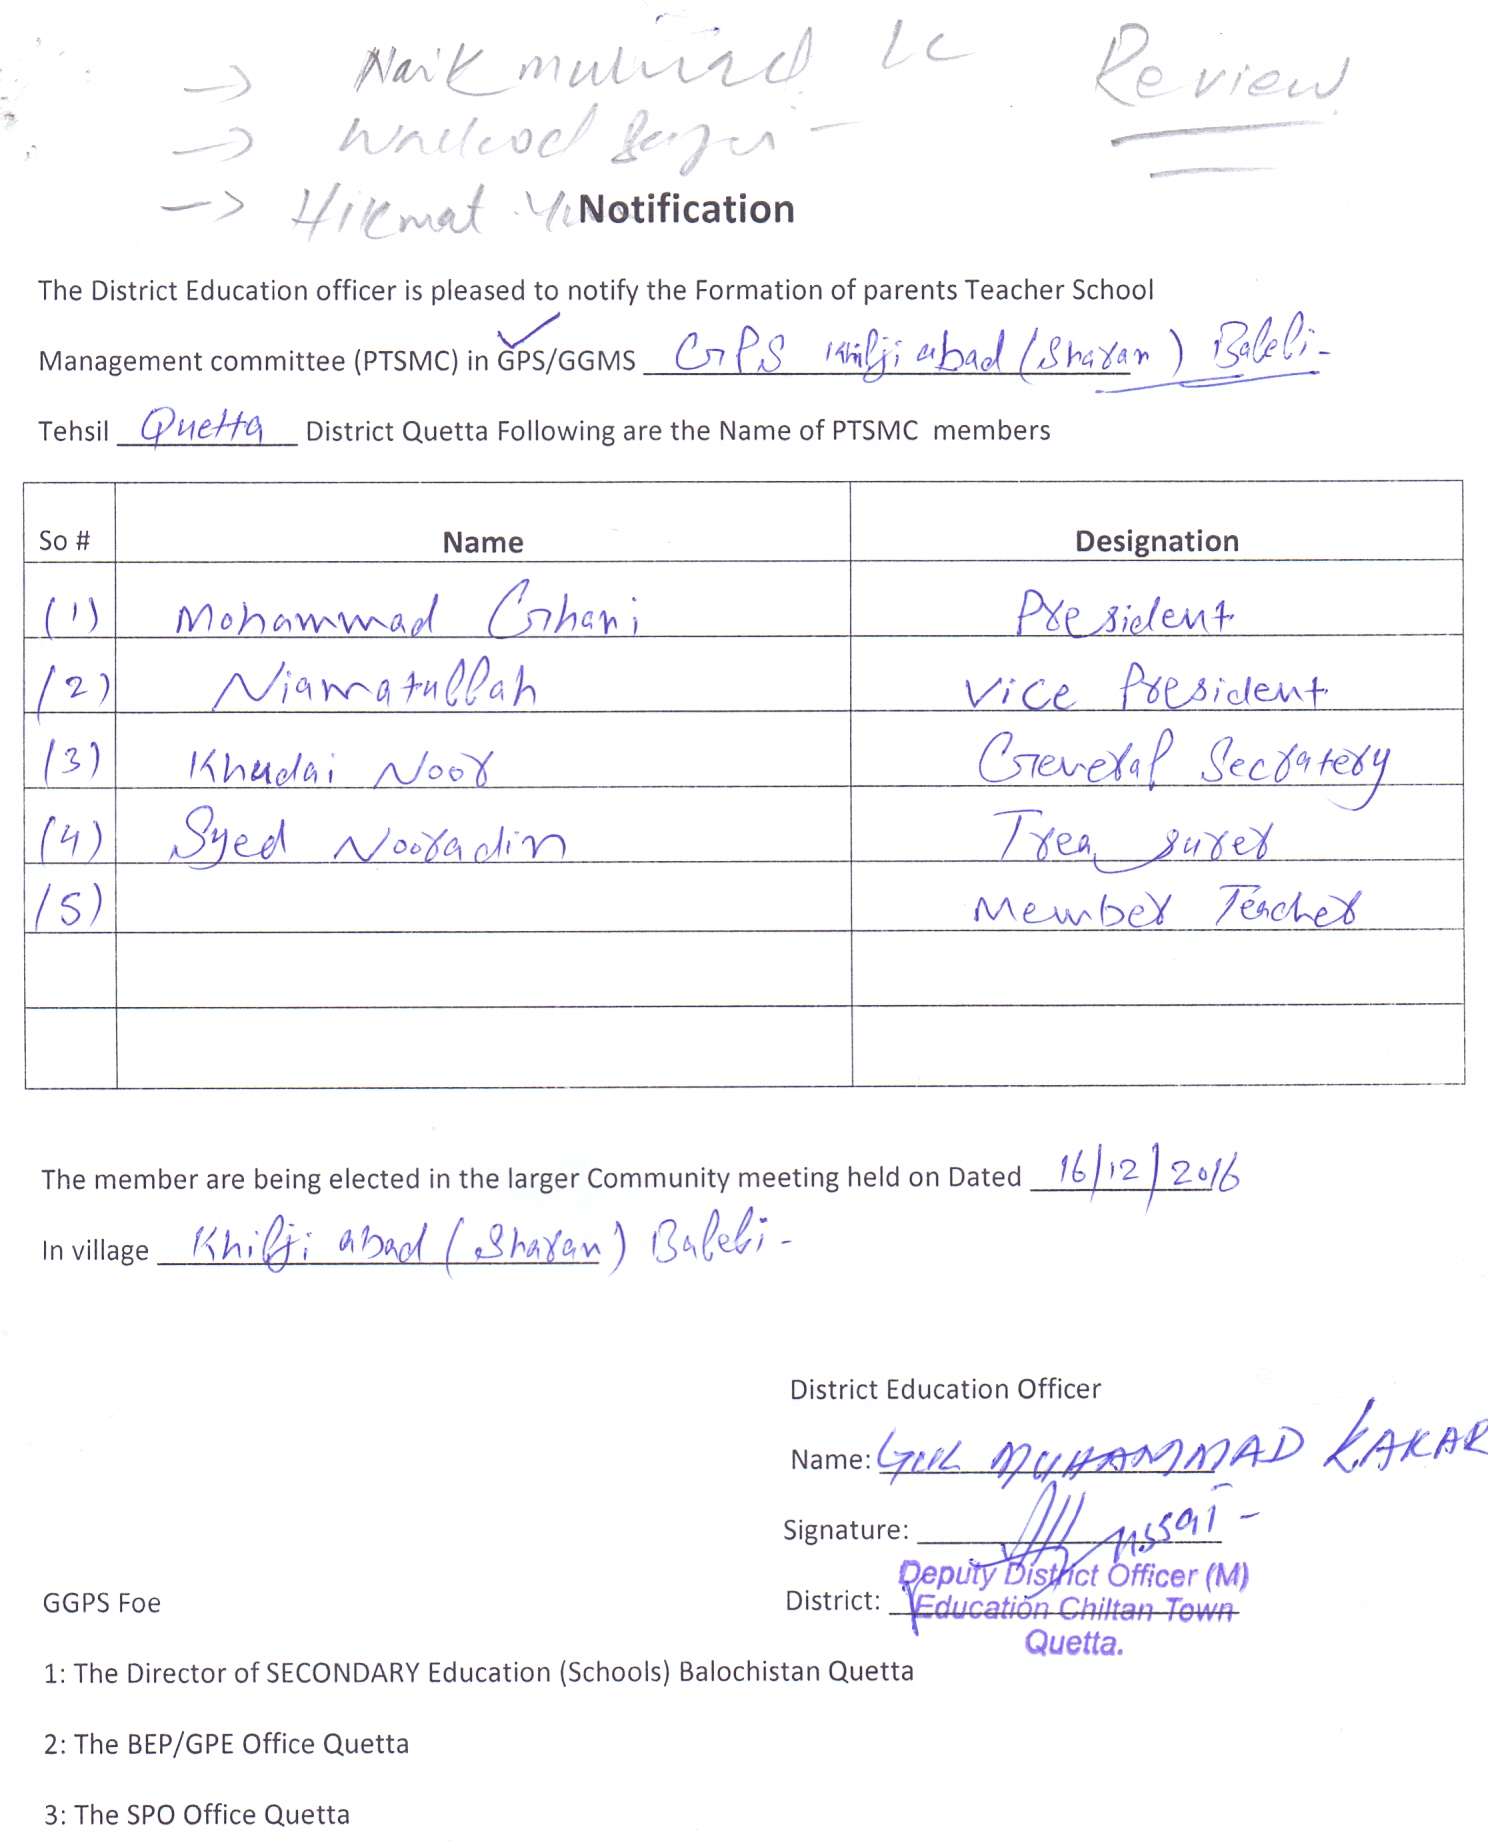 → Naik muhmad LC Review
→
→ Hikmat
Notification
The District Education officer is pleased to notify the Formation of parents Teacher School
Management committee (PTSMC) in GPS/GGMS GPS Khilji abad (Sharan) Baleli-
Tehsil Quetta District Quetta Following are the Name of PTSMC members
So # Name Designation
(1) Mohammad Ghani President
(2) Niamatullah Vice President
(3) Khudai Noor General Secratery
(4) Syed Nooradin Treasurer
(5) Member Teacher
The member are being elected in the larger Community meeting held on Dated 16/12/2016
In village Khilji abad (Sharan) Baleli-
District Education Officer
Name: GUL MUHAMMAD KAKAR
Signature:
Deputy District Officer (M)
District: Education Chiltan Town
Quetta.
GGPS Foe
1: The Director of SECONDARY Education (Schools) Balochistan Quetta
2: The BEP/GPE Office Quetta
3: The SPO Office Quetta